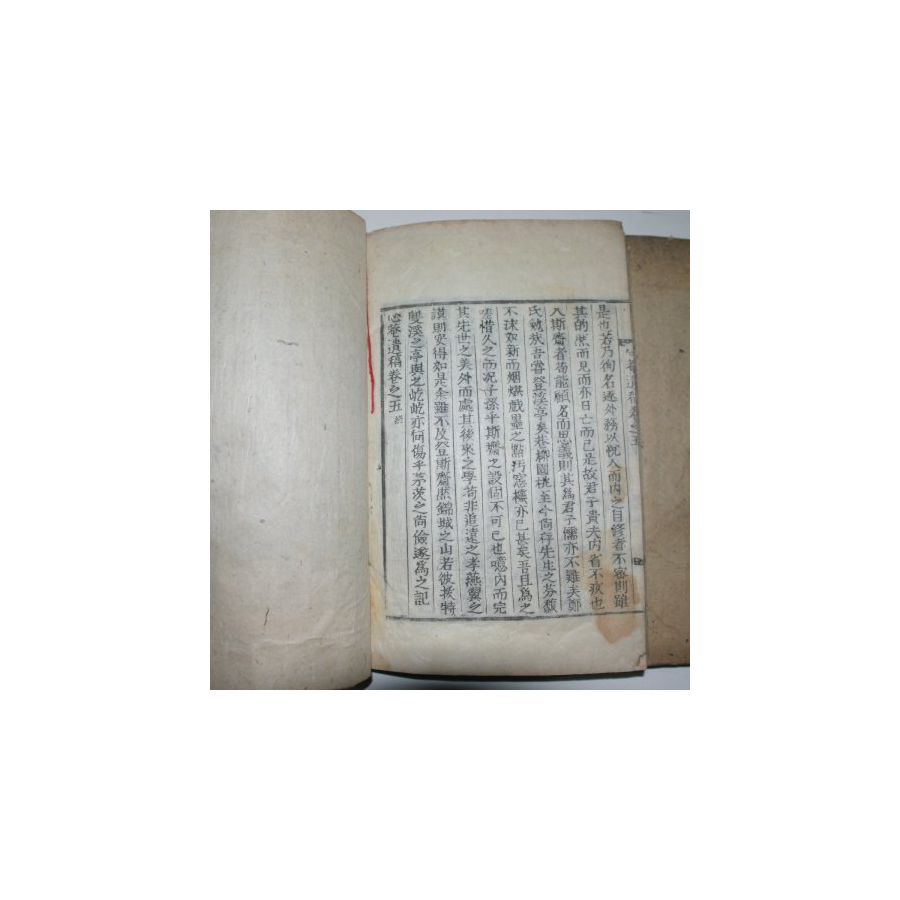 是也若乃徇名逐外務以悅人而內之自修者不密則雖
其的然而見而亦日亡而已是故君子貴夫內省不疚也
入斯齋者苟能顧名而思義則其爲君子儒亦不難矣鄭
氏勉哉吾嘗登溪亭矣巷柳園桃至今尙存先生之芬馥
不沫如新而烟煤戲墨之點汚窓櫳亦已甚矣吾且爲之
嗟惜久之而况子孫乎斯齋之設固不可已也噫內而完
其先世之美外而處其後來之學苟非追遠之孝燕翼之
謨則安得如是余雖不及登斯齋然錦城之山若彼拔特
雙溪之亭與之屹屹亦何傷乎茅茨之尙儉遂爲之記
心菴遺稿卷之五 終